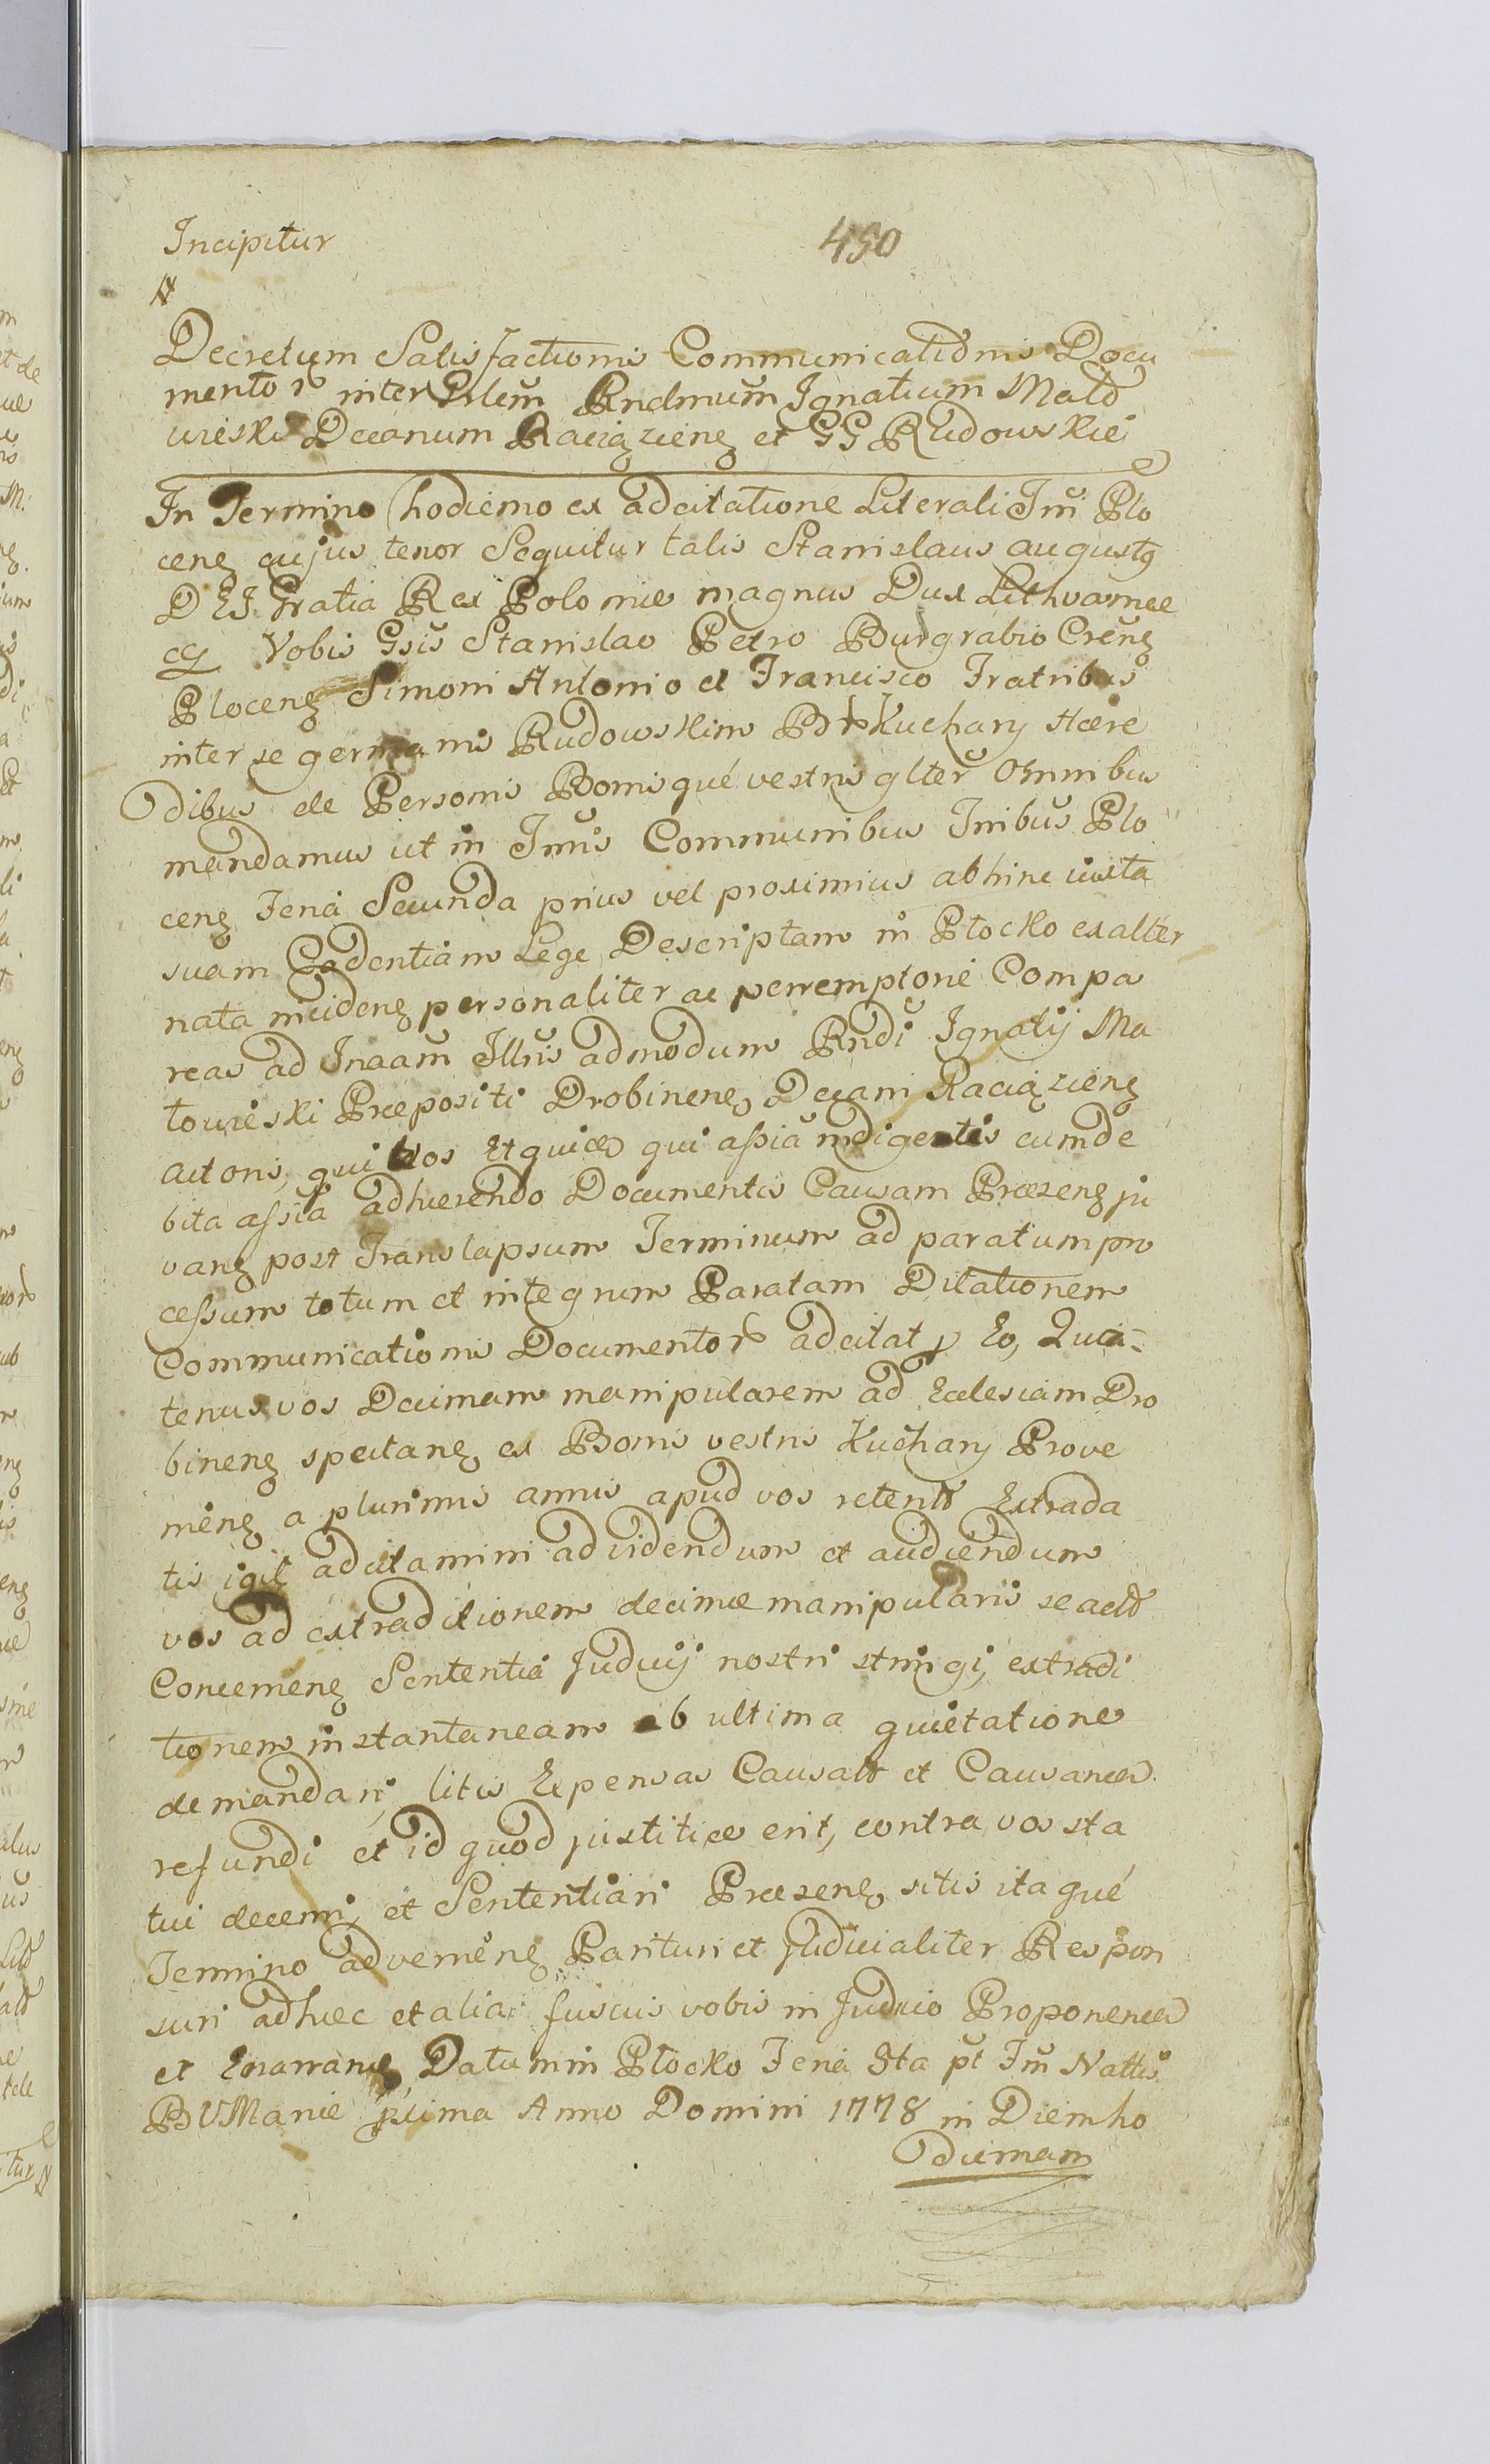 Incipitur
450
Decretum Satisfactionis Communicationis Docu
mentor inter Perlem Rndmum Ignatium Mato
wieski Decanum Raciązieng et GG Rudowskie
In Termino hodierno ex adcitatione Literali Jmi Plo
ceng cujus tenor Sequitur talis Stanislaus augustg
DEI Gratia Rex Polonie magnus Dux Lithvaniae
Vobis Gsis Stanislao Petro Burgrabio Creng
Ploceng Simoni Antonio et Francisco Fratribus
inter se germanis Rudowskim Br Kuchary Hære
dibus de Personis Bonisqué vestris glter Omnibus
mandamus ut in Jmis Communibus Inibus Plo
ceng Feriâ Secunda prius vel proximius abhinc iuxta
suam Cadentiam Lege Descriptam in Płocko ex alter
nata incideng personaliter ac perremptorié Compa
reas ad Jnaam Jllris admodum Rndi Ignatij Ma
towieski Præpositi Drobineng Decani Raciązieng
actoris, qui vos Etquia qui assia indigentis cum de
bita assia adhærendo Documentis Causam Præseng ju
vang post Translapsum Terminum ad paratum pro
cessum totum et integrum Paratam Dilationem
Communicationis Documentor adcitat p Eo, Qua-
tenus vos Decimam manipularem ad Ecclesiam Dro
bineng spectang ex Bonis vestris Kuchary Prove
nieng a plurimis annis apud vos retentâ Extrada
tis igit adcitamini ad videndum et audiendum
vos ad extraditionem decimæ manipularis se actô
Concerneng Sententiâ Judicij nostri stringi, extradi
tionem instantaneam ab ultima quietatione
demandari, litis Expensas Causatâ et Causanda
refundi et id quod justitiæ erit, contra vos sta
tui decerni, et Sententiari Præseng, sitis itaqué
Termino advenieng Parituri et judicialiter Respon
suri adhæc et alia fusius vobis in Judicio Proponenda
et Enarrang Datum in Płocko Feriâ 3ta pt Jm Nattis
BVMarie prima Anno Domini 1778 in Diem ho
diernam